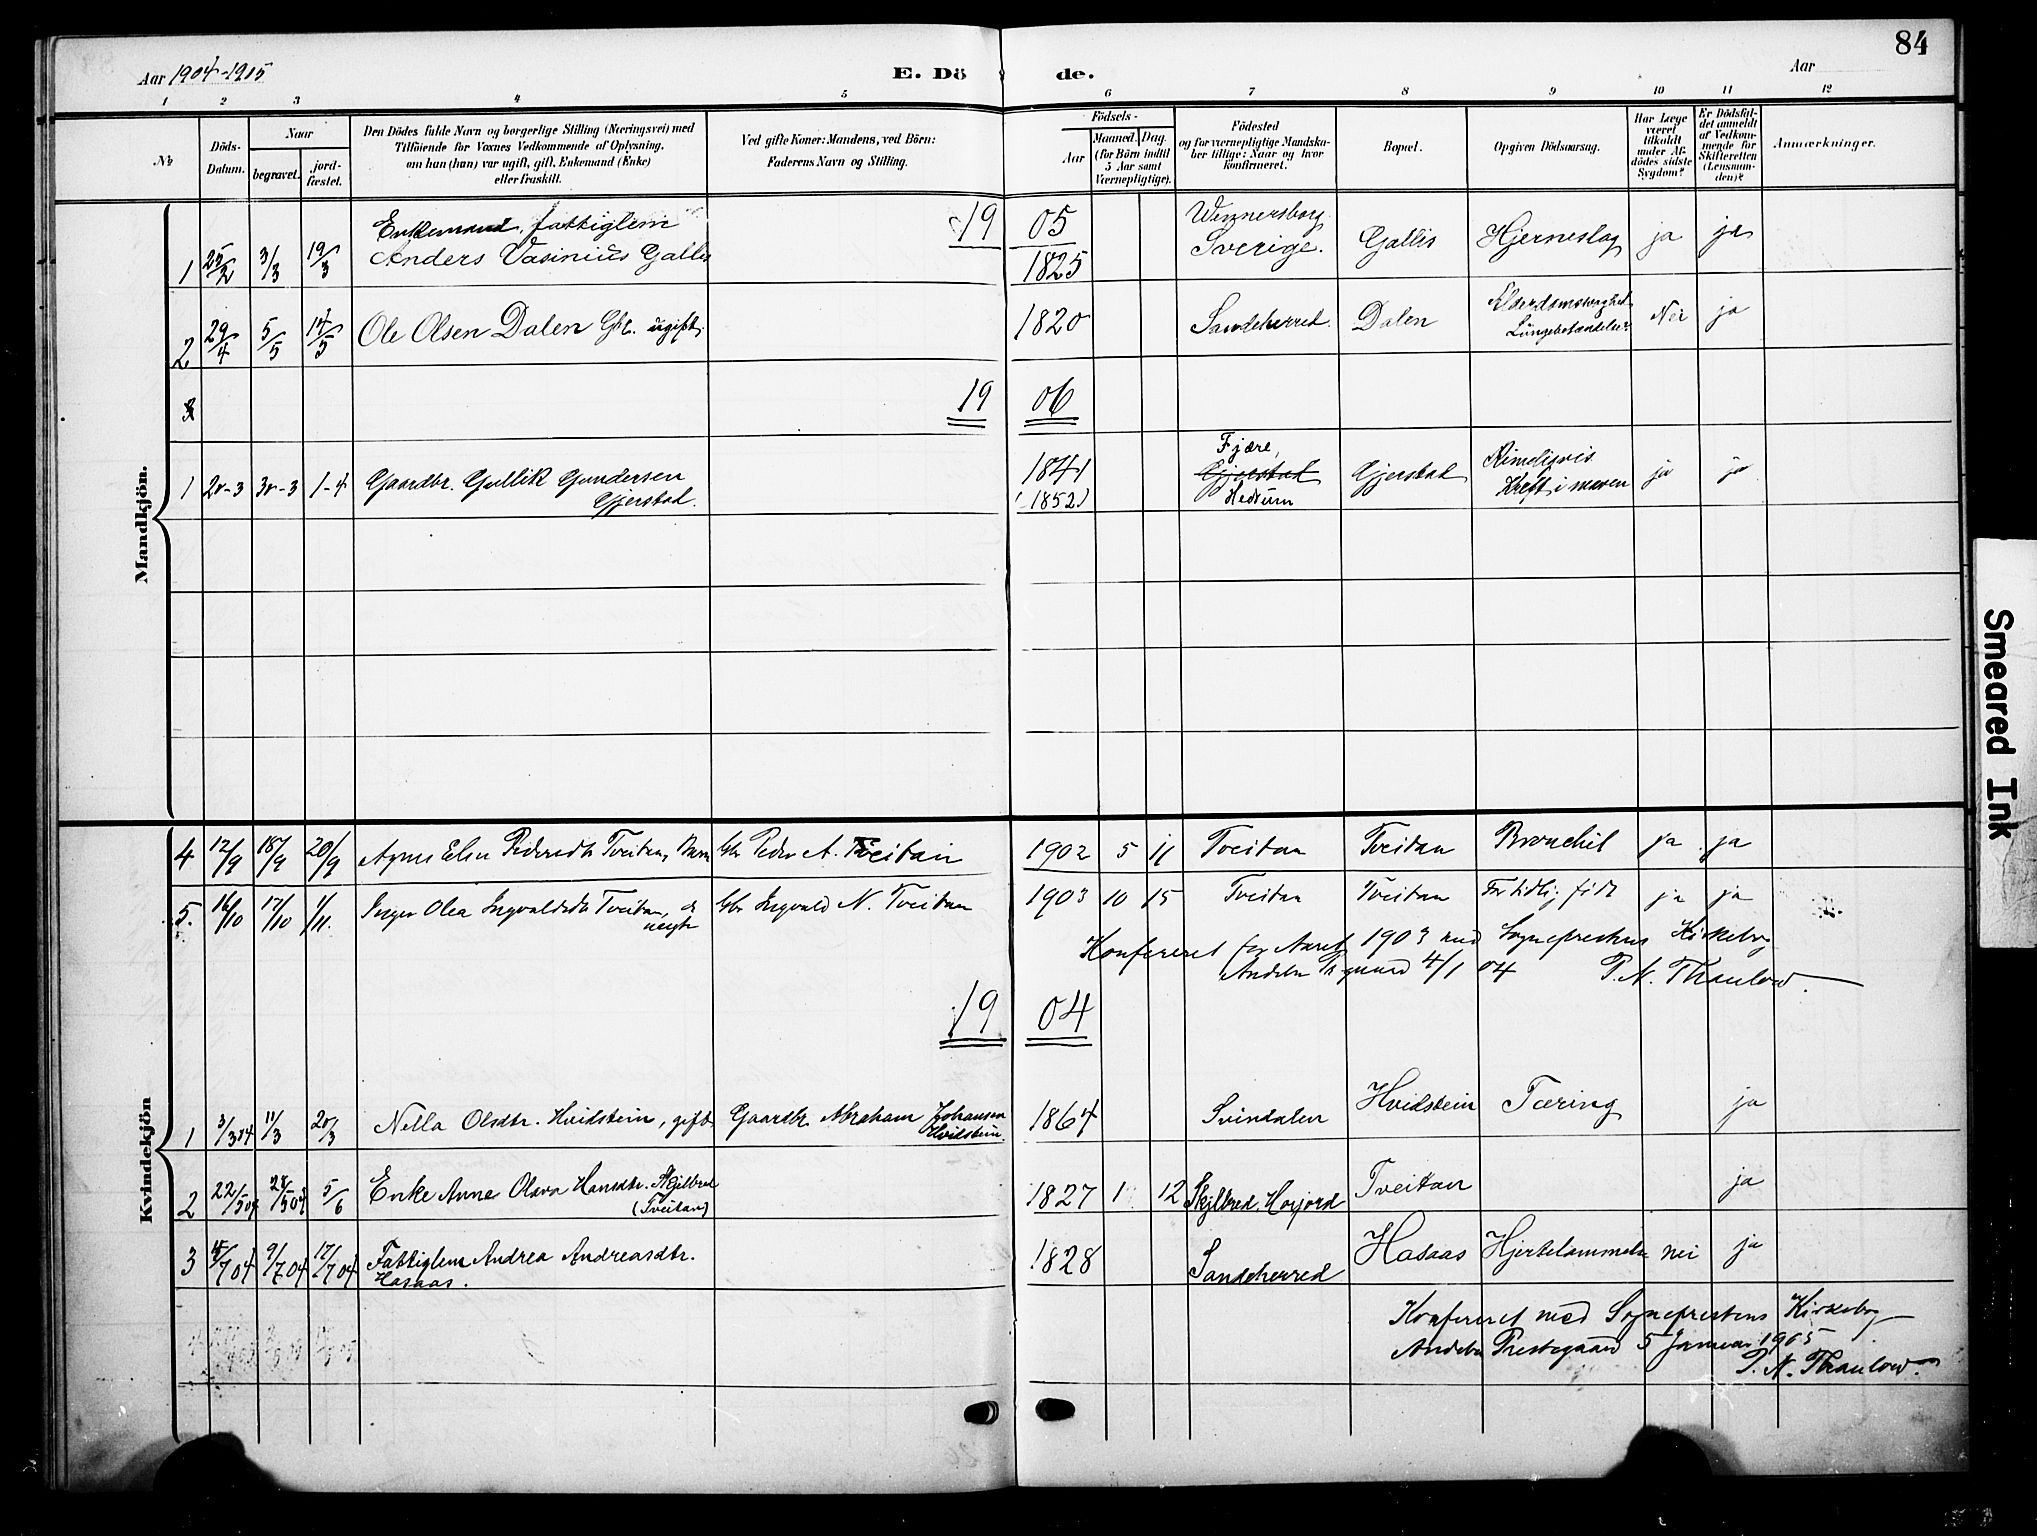 84
Aar 1904-1905 E. Dö de. Aar
1 2 3 4 5 6 7 8 9 10 11 12
№
Döds-Datum.
Naar
begravet.
jord-fæstet.
Den Dödes fulde Navn og borgerlige Stilling (Næringsvei) med
Tilföiende for Voxnes Vedkommende af Oplysning,
om han (hun) var ugift, gift, Enkemand (Enke)
eller fraskilt.
Ved gifte Koner: Mandens, ved Börn:
Faderens Navn og Stilling.
Födsels-
Aar
Maaned. Dag.
(for Börn indtil
5 Aar samt
Værnepligtige).
Födested
og for værnepligtige Mandska-
ber tillige: Naar og hvor
konfirmeret.
Bopæl.
Opgiven Dödsaarsag.
Har Læge
været
tilkaldt
under Af-
dödes sidste
Sygdom?
Er Dödsfal-
det anmeldt
af Vedkom-
mende for
Skifteretten
(Lensman-
den)?
Anmærkninger.
Mandkjön.
19 05
Enkemand, fattiglem Wennersborg
1 25/2 3/3 19/3 Anders Vasinius Gallis 1825 Sverige. Gallis Hjerneslag ja ja
2 29/4 5/5 14/5 Ole Olsen Dalen Gbr. ugift. 1820 Sandeherred. Dalen Nei ja
3 19 06
Fjære,
1 20-3 30-3 1-4 Gaardbr. Gullik Gundersen 1841 Gjerstad Gjerstad Rimeligvis ja ja
Gjerstad. (1852) Hedrum Kræft i maven
Kvindekjön
4 12/9 18/9 20/9 Agnes Elise Pedersdtr Tveitan, Barn Gbr Peder A. Tveitan 1902 5 11 Tveitan Tveitan Bronchit ja ja
5. 16/10 17/10 1/11. Inger Olea Ingvaldsdtr Tveitan, Gbr Ingvald N. Tveitan 1903 10 15 Tveitan Tveitan For tidlig født ja ja
Konfereret for Aaret 1903 med Sogneprestens Kirkebog
Andebu 4/1 04 P. N. Thaulow.
19 04
1 3/3 04 11/3 20/3 Nella Olsdtr. Hvidstein, gift Gaardbr. Abraham Johansen Hvidstein. 1864 Svindalen Hvidstein Tæring ja
2 22/5 04 28/5 04 5/6 Enke Anne Olava Hansdtr. Skjelbred 1827 1 12 Skjelbred. Tveitan ja
(Tveitan)
3 9/7 04 17/7 04 Fattiglem Andrea Andreasdtr. 1828 Sandeherred Hasaas Hjertelammelse nei ja
Hasaas.
Konfereret med Sogneprestens Kirkebog
Andebu Prestegaard 5 Januar 1905
P. N. Thaulow.
Smeared Ink